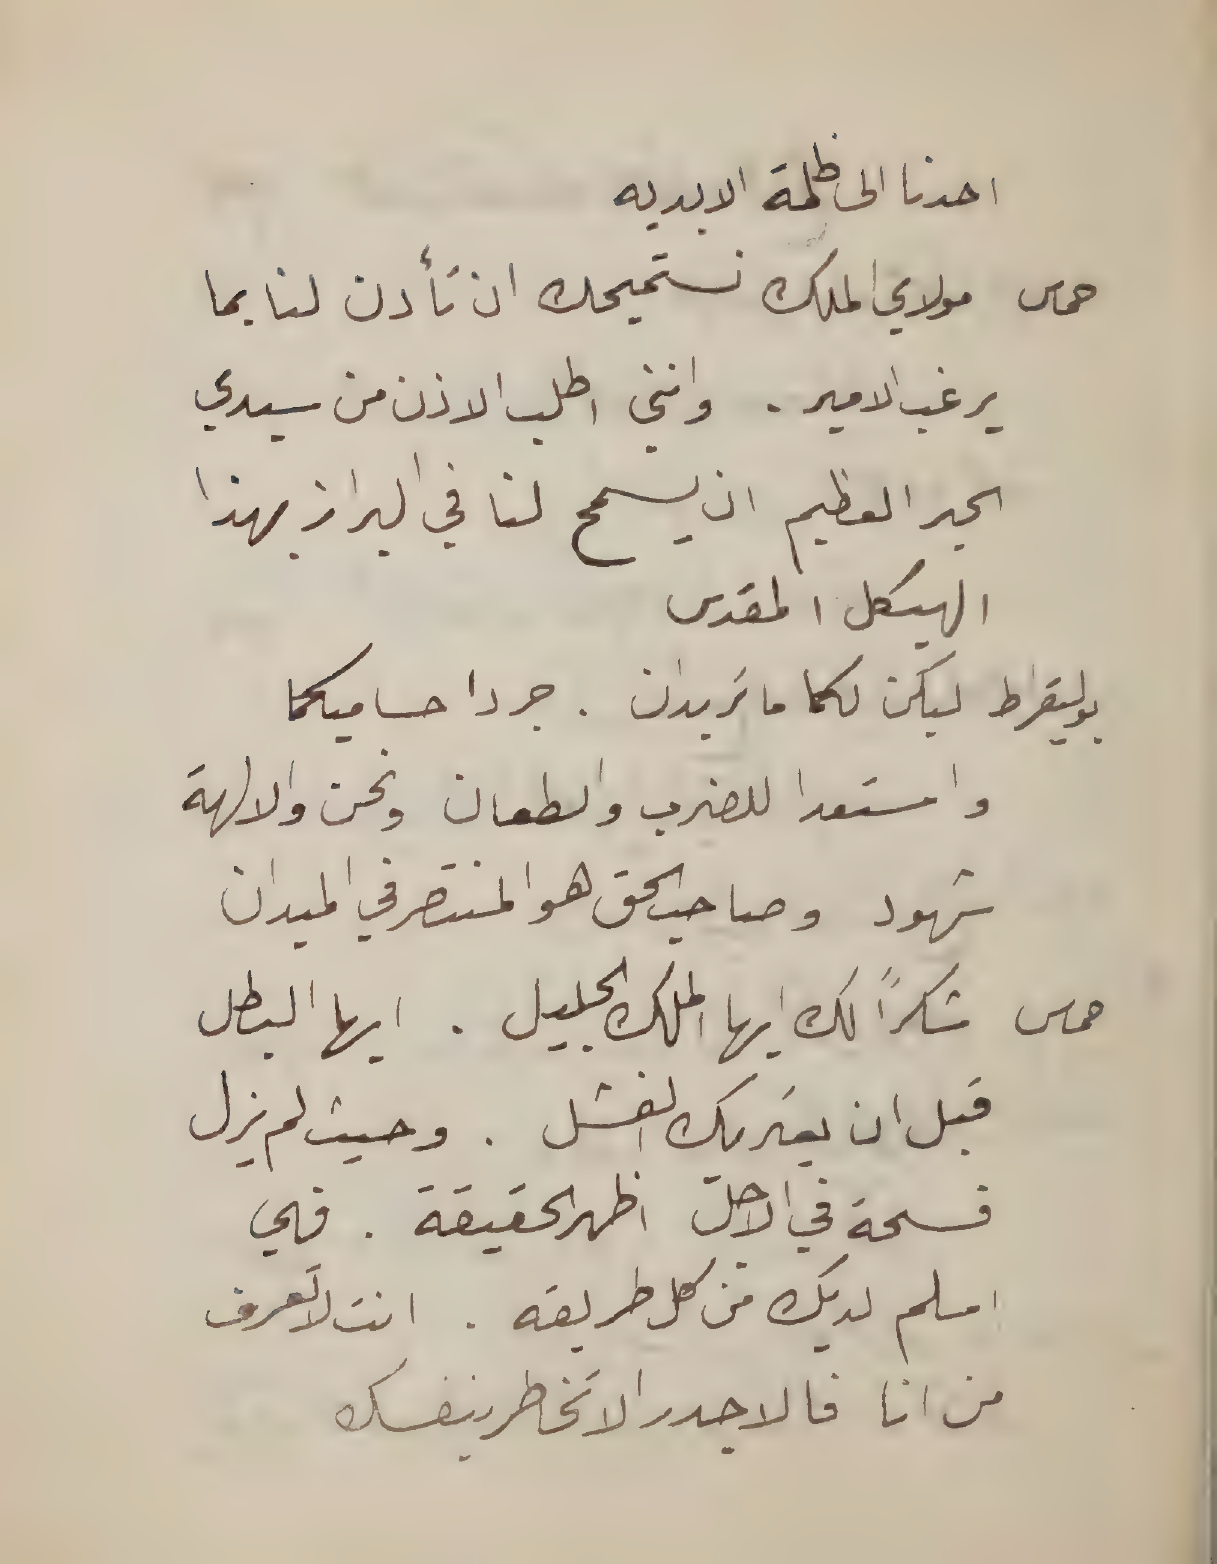 احدنا الى ظلمة الابديه
حمس مولاي الملك نستميحك ان تأذن لنا بما
يرغب الامير . وانني اطلب الاذن من سيدي
الحبر العظيم ان يسمح لنا في البراز بهذا
الهيكل المقدس
بوليقراط ليكن لكما ما تريدان . جردا حساميكما
واستعدا للضرب والطعان ونحن والالهة
شهود وصاحب الحق هو المنتصر في الميدان
حمس شكراً لك ايها الملك الجليل . ايها البطل
قبل ان يعتريك الفشل . وحيث لم يزل
فسحة في الاجل اظهر الحقيقة . فهي
اسلم لديك من كل طريقه . انت لا تعرف
من انا فالاجدر الا تخاطر بنفسك